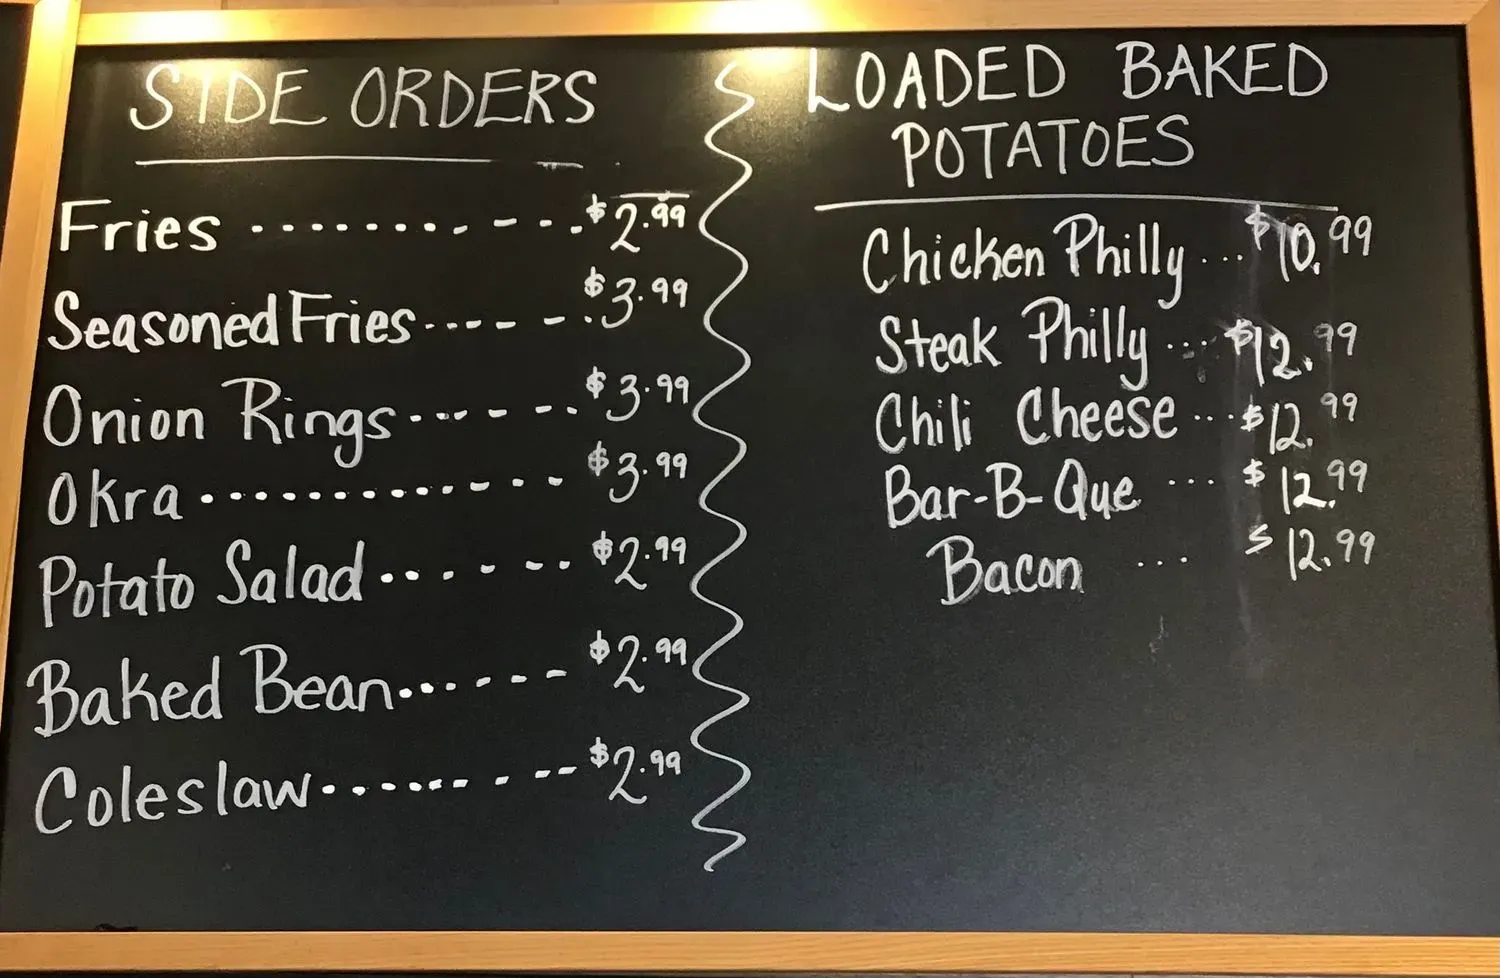 SIDE ORDERS
Fries ........... $2.99
Seasoned Fries ....--. $3.99
Onion Rings ...---. $3.99
Okra ............. $3.99
Potato Salad ....--. $2.99
Baked Bean ....--- $2.99
Coleslaw .......--- $2.99
LOADED BAKED
POTATOES
Chicken Philly ... $10.99
Steak Philly ... $12.99
Chili Cheese ... $12.99
Bar-B-Que ... $12.99
Bacon ... $12.99